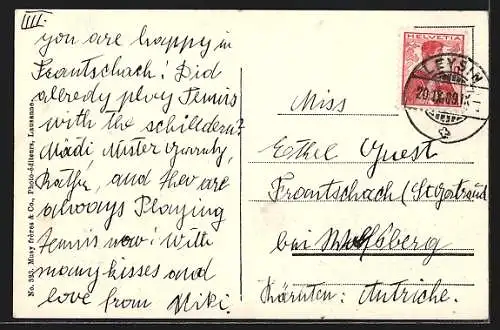 IIII.
you are happy in
Frantschach! Did
allredy play Tennis
with the schilldern?
Mädi Mister
and they are
always Playing
tennis now! with
many kisses and
love from Niki.
No. 393. Mussy frères & Co., Photo-éditeurs, Lausanne.
HELVETIA
LEYSIN
20.IX.09.IX
Miss
Esthel Guest
Frantschach (St. Gertraud
bei Wolfsberg
Kärnten: Autriche.